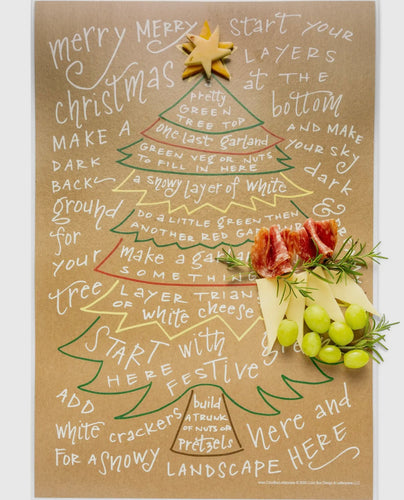 merry merry
christmas
start your
layers
at the
bottom
MAKE A
DARK
BACK-
ground
for
your
tree
AND MAKE
your sky
dark
&
pretty
GREEN
TREE TOP
one last garland
GREEN VEG OR NUTS
TO FILL IN HERE
a snowy layer of white
DO A LITTLE GREEN THEN
ANOTHER RED GAR
make a ga
SOMETHING
LAYER TRIAN
OR white cheese
START with
HERE FESTIVE
gre
build
A TRUNK
OF NUTS OR
PRETZELS
ADD
white crackers
FOR A SNOWY
LANDSCAPE HERE
here and